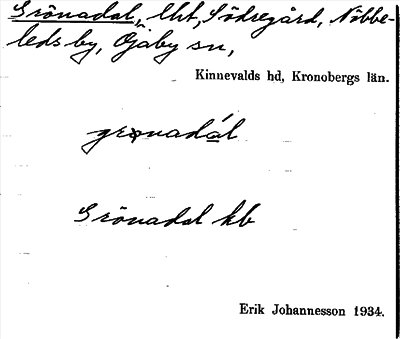 Grönadal, lht, Södregård, Nöbbe-
leds by, Öjaby sn,
Kinnevalds hd, Kronobergs län.
Grönadal kb
Erik Johannesson 1934.